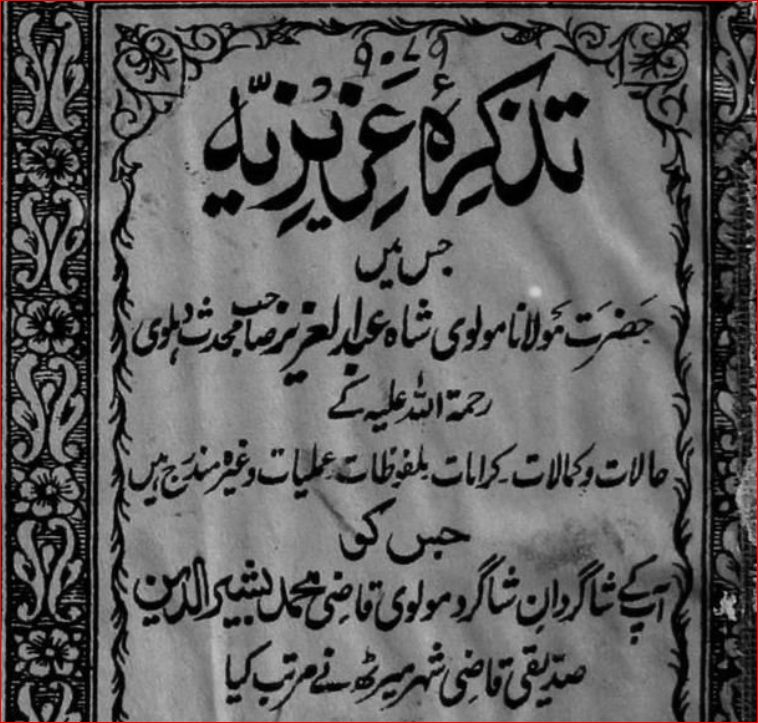 ۹۰۷۹
تذکرۂ عزیزیہ
جس میں
حضرت مولانا مولوی شاہ عبدالعزیز صاحب محدث دہلوی
رحمۃ اللہ علیہ کے
حالات و کمالات۔ کرامات۔ ملفوظات۔ عملیات وغیرہ مندرج ہیں
جس کو
آپ کے شاگردانِ شاگرد مولوی قاضی محمد بشیر الدین
صدیقی قاضی شہر میرٹھ نے مرتب کیا